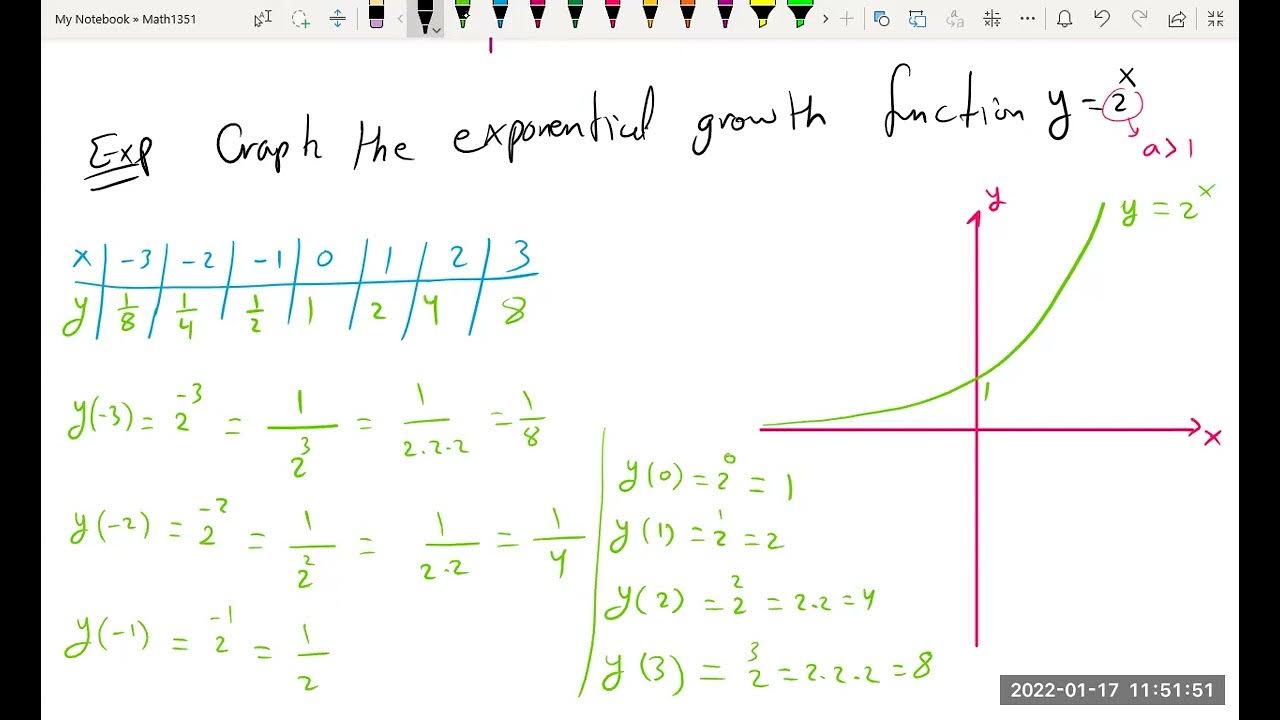 My Notebook » Math1351
Exp Graph the exponential growth function y = 2^x
a > 1
x | -3 | -2 | -1 | 0 | 1 | 2 | 3
y | 1/8 | 1/4 | 1/2 | 1 | 2 | 4 | 8
y
y = 2^x
1
x
y(-3) = 2^-3 = 1/2^3 = 1/2.2.2 = 1/8
y(-2) = 2^-2 = 1/2^2 = 1/2.2 = 1/4
y(-1) = 2^-1 = 1/2
y(0) = 2^0 = 1
y(1) = 2^1 = 2
y(2) = 2^2 = 2.2 = 4
y(3) = 2^3 = 2.2.2 = 8
2022-01-17 11:51:51